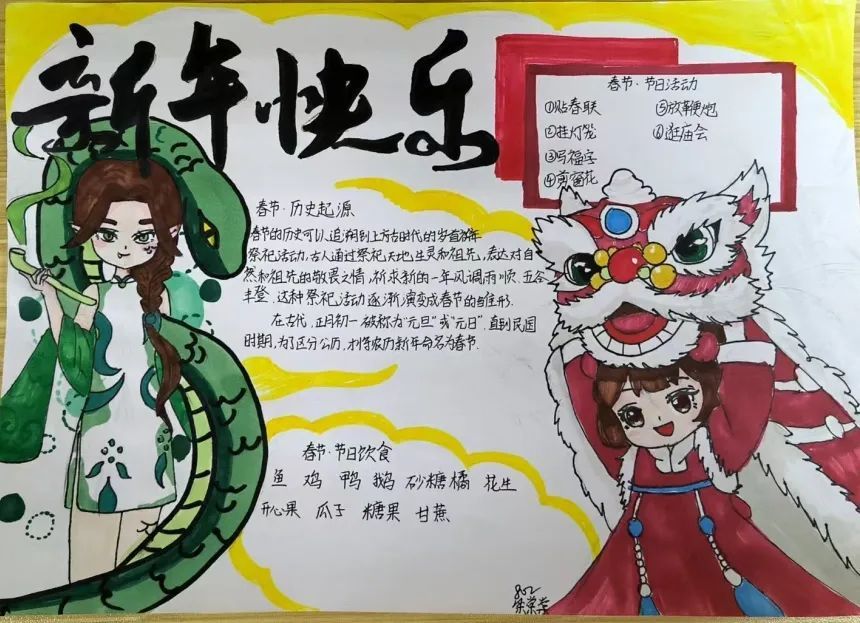 新年快乐
春节·节日活动
①贴春联 ⑤放鞭炮
②挂灯笼 ⑥逛庙会
③写福字
④剪窗花
春节·历史起源
春节的历史可以追溯到上万古时代的岁首祈年
祭祀活动,古人通过祭祀天地生灵和祖先,表达对自
然和祖先的敬畏之情,祈求新的一年风调雨顺、五谷
丰登,这种祭祀活动逐渐演变成春节的雏形.
在古代,正月初一被称为“元旦”或“元日”,直到民国
时期,为了区分公历,才将农历新年命名为春节.
春节·节日饮食
鱼 鸡 鸭 鹅 砂糖橘 花生
开心果 瓜子 糖果 甘蔗
802